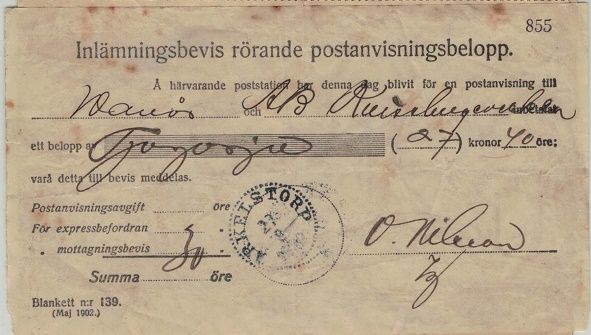 855
Inlämningsbevis rörande postanvisningsbelopp.
Å härvarande poststation har denna dag blivit för en postanvisning till
och AB inbetalat
ett belopp av Tjugosju (27) kronor 40 öre;
varå detta till bevis meddelas.
Postanvisningsavgift öre
För expressbefordran
„ mottagningsbevis 30
Summa öre
ARKELSTORP
O. Nilsson
Blankett n:r 139.
(Maj 1902.)